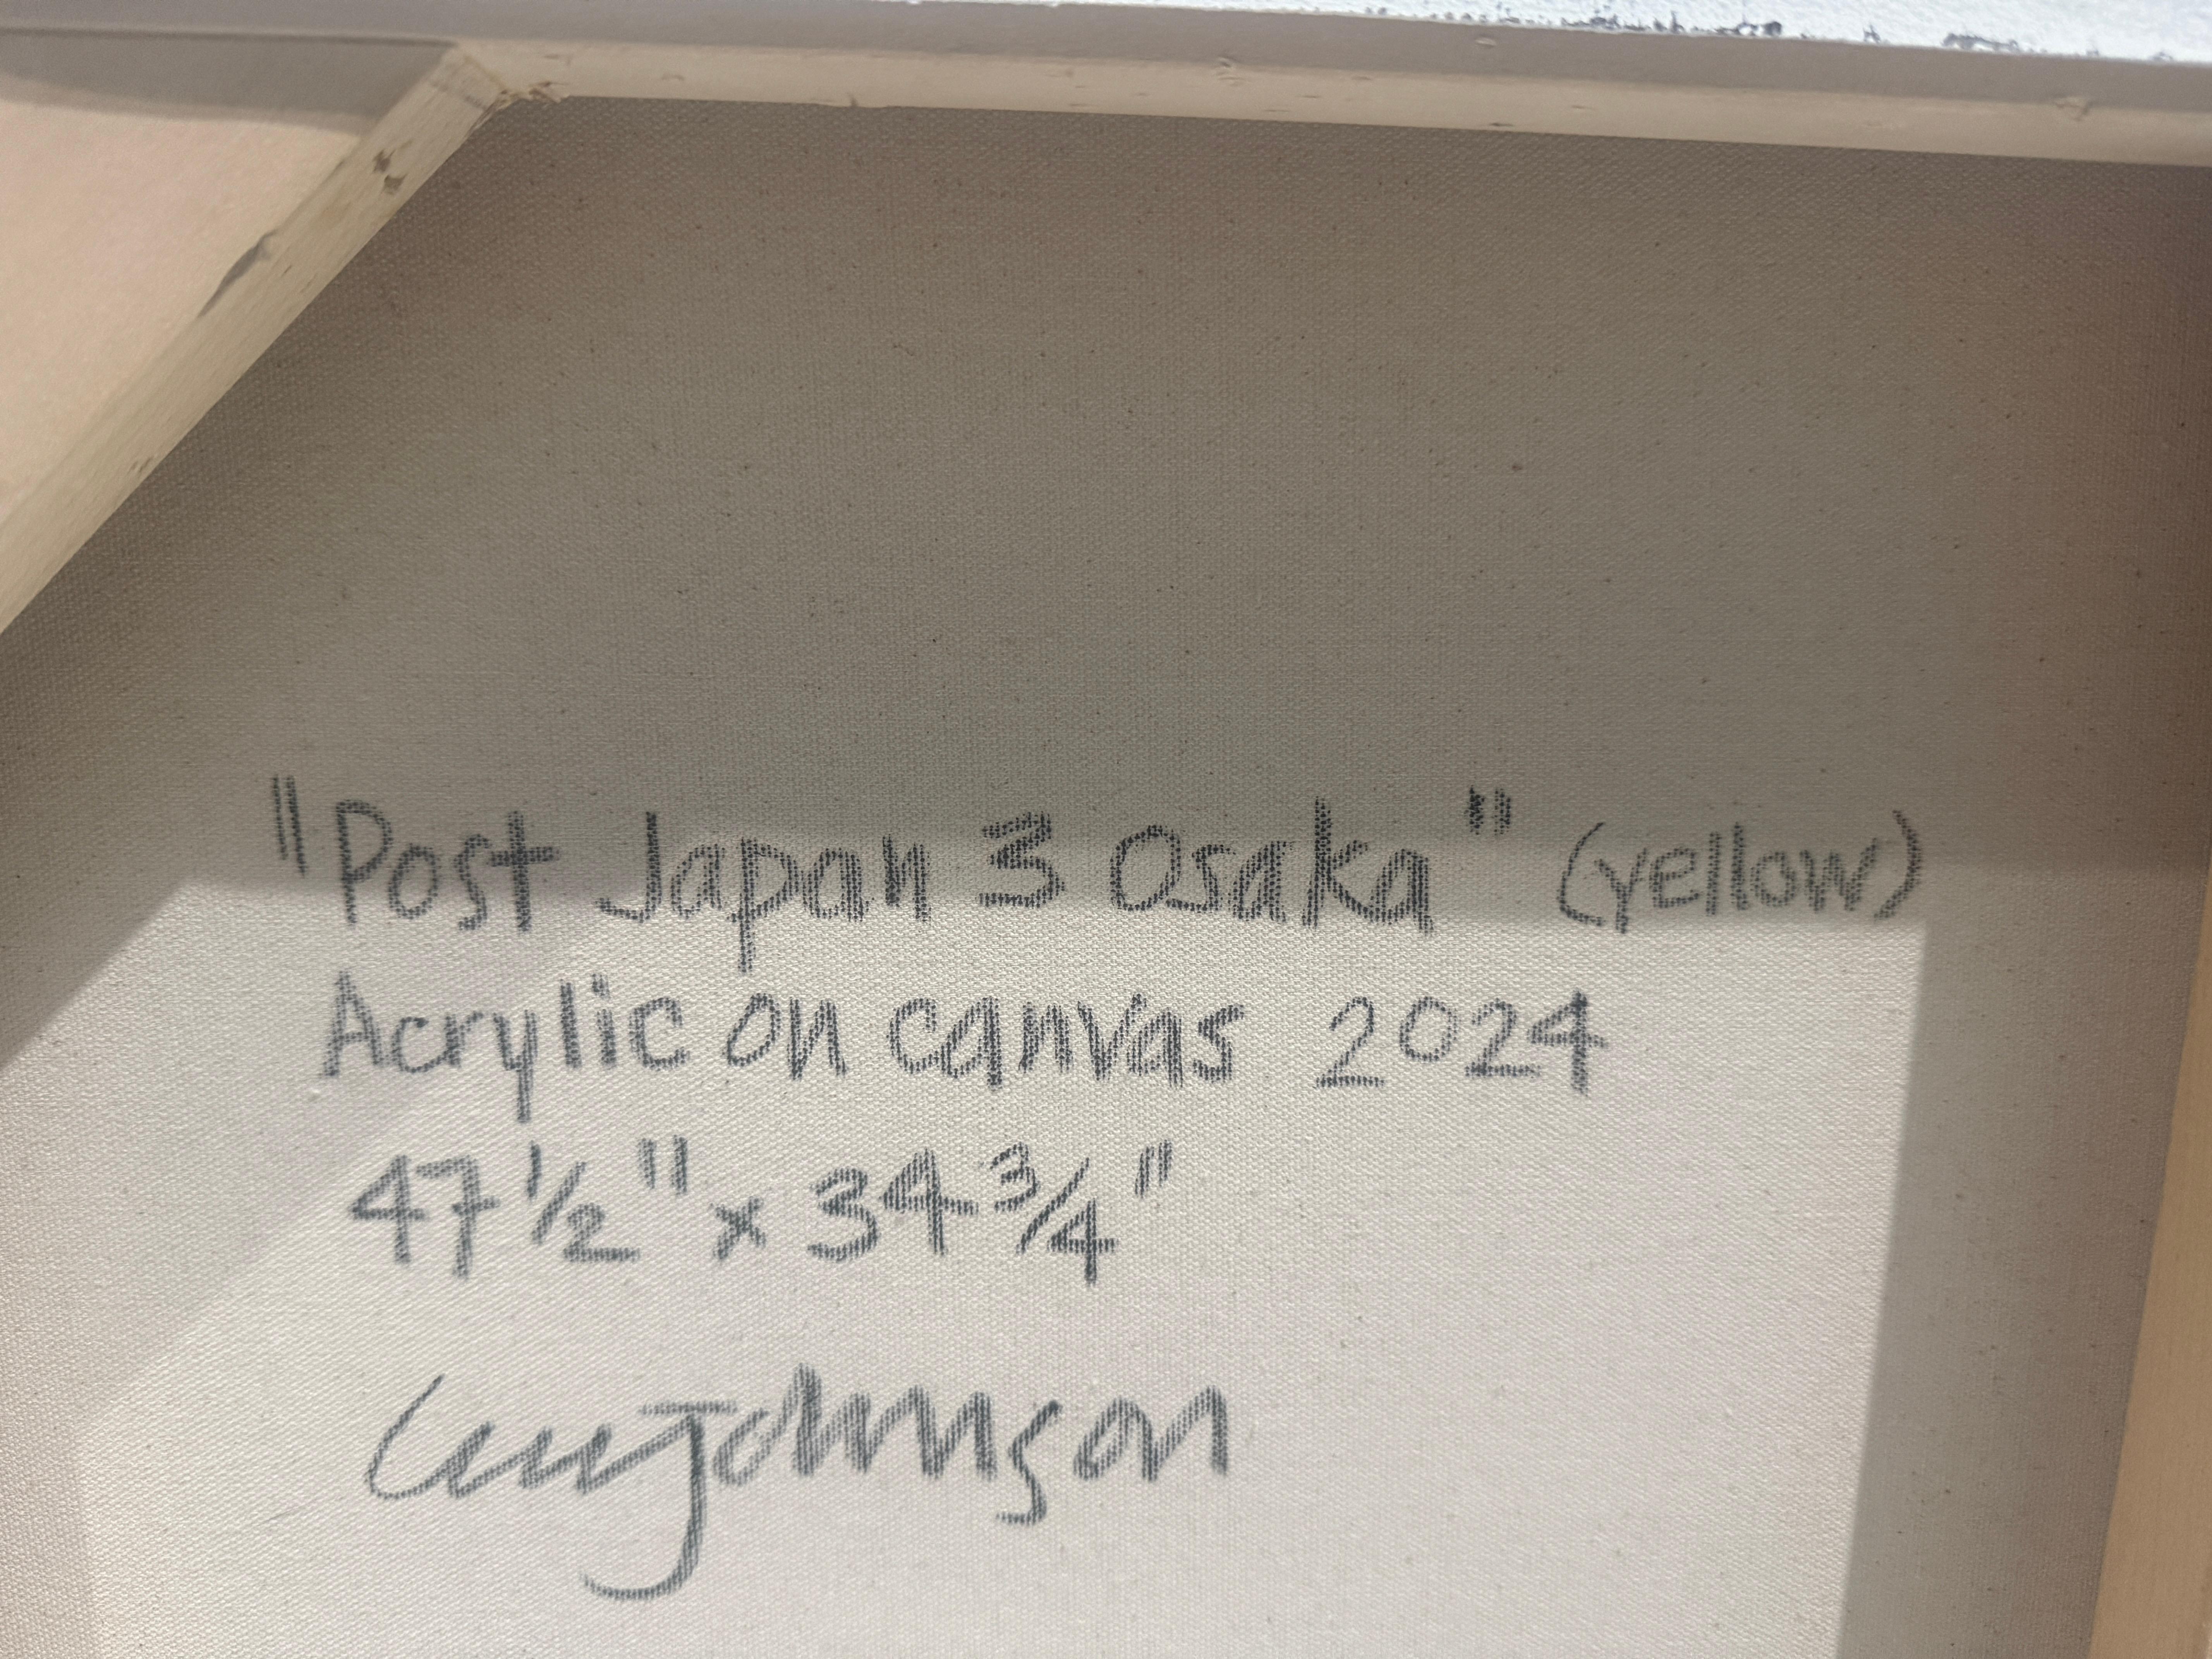 "Post Japan 3 Osaka" (yellow)
Acrylic on canvas 2024
47 1/2" x 34 3/4"
Johnson